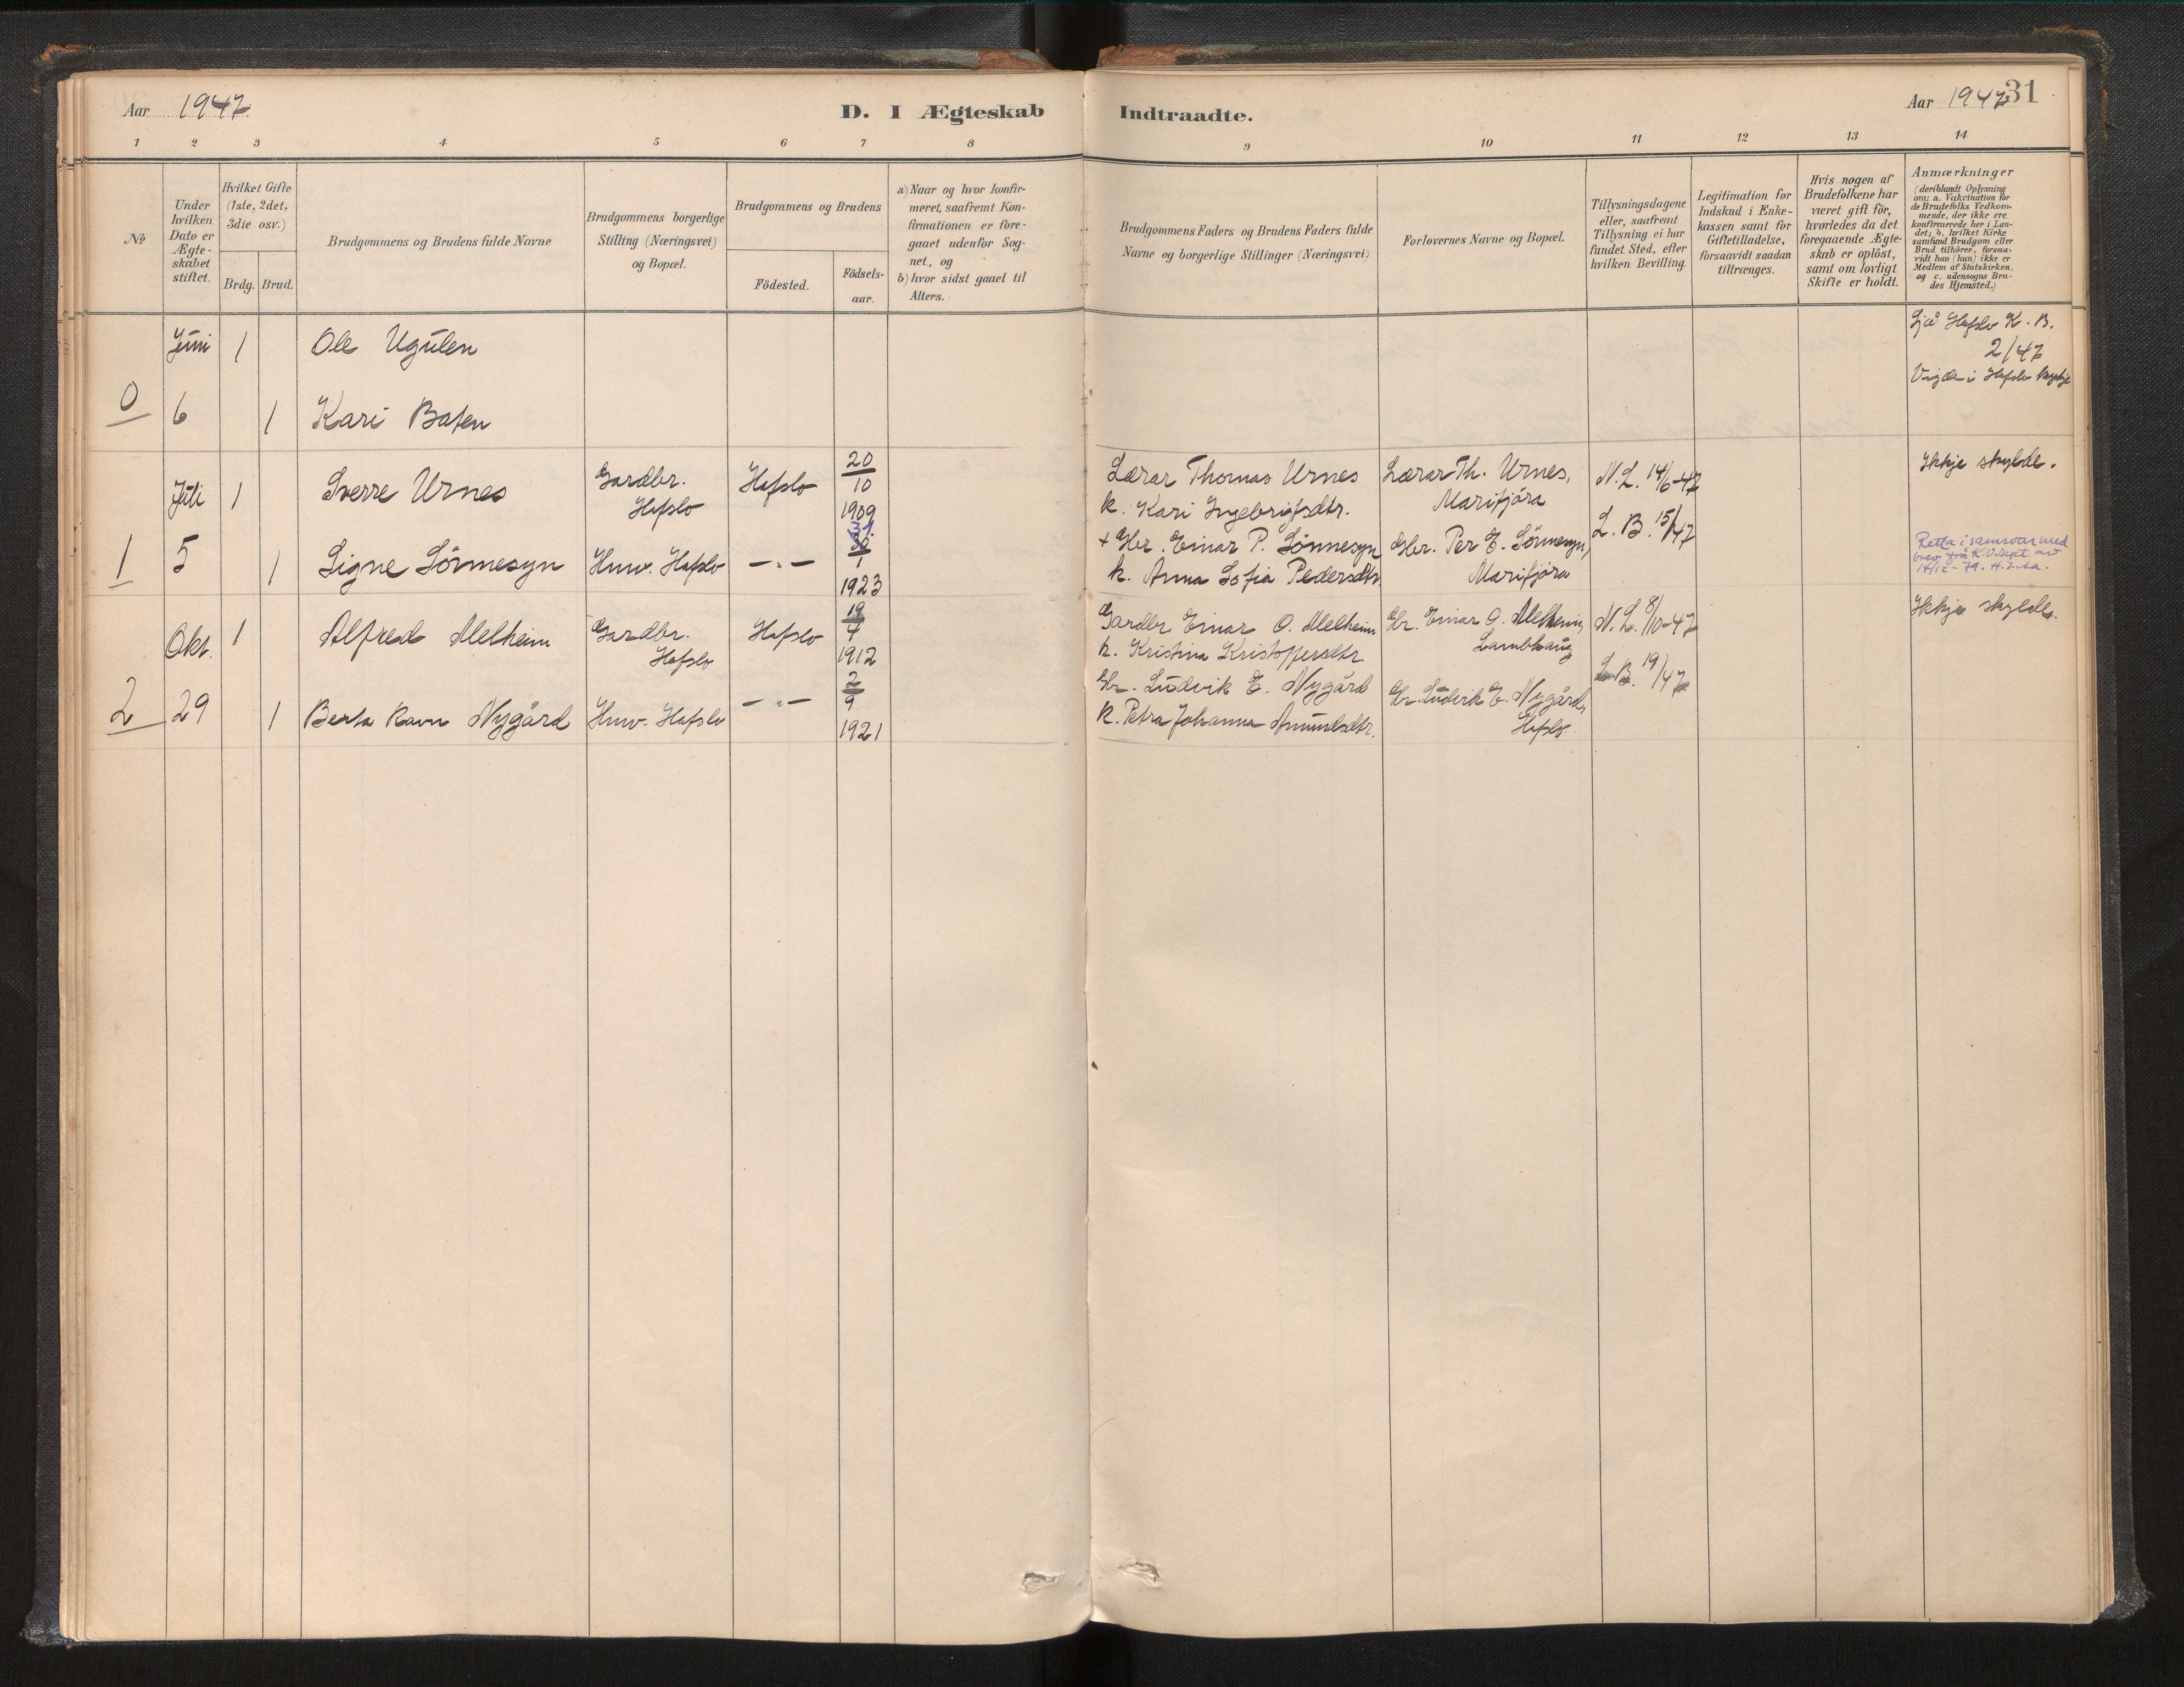 Aar 1947
D. I Ægteskab Indtraadte.
Aar 1947
31
1 2 3 4 5 6 7 8 9 10 11 12 13 14
No
Under
hvilken
Dato er
Ægte-
skabet
stiftet.
Hvilket Gifte
(1ste, 2det,
3die osv.)
Brdg. Brud.
Brudgommens og Brudens fulde Navne
Brudgommens borgerlige
Stilling (Næringsvei)
og Bopæl.
Brudgommens og Brudens
Födested.
Födsels-
aar.
a) Naar og hvor konfir-
meret, saafremt Kon-
firmationen er fore-
gaaet udenfor Sog-
net, og
b) hvor sidst gaaet til
Alters.
Brudgommens Faders og Brudens Faders fulde
Navne og borgerlige Stillinger (Næringsvei)
Forlovernes Navne og Bopæl.
Tillysningsdagene
eller, saafremt
Tillysning ei har
fundet Sted, efter
hvilken Bevilling.
Legitimation for
Indskud i Enke-
kassen samt for
Giftetilladelse,
forsaavidt saadan
tiltrænges.
Hvis nogen af
Brudefolkene har
været gift för,
hvorledes da det
foregaaende Ægte-
skab er oplöst,
samt om lovligt
Skifte er holdt.
Anmærkninger
(deriblandt Oplysning
om: a. Vakcination for
de Brudefolks Vedkom-
mende, der ikke ere
konfirmerede her i Lan-
det; b. hvilket Kirke
samfund Brudgom eller
Brud tilhörer, forsaa-
vidt han (hun) ikke er
Medlem af Statskirken.
og c. udensogns Bru-
des Hjemsted.)
Juni 1 Ole Ugulen
0 6 1 Kari Bafen
Sjå Hafslo K. B.
2/47
Vigde i Hafslo kyrkje
Juli 1 Sverre Urnes
Gardbr.
Hafslo
Hafslo
20
10
1909
Lærar Thomas Urnes
k. Kari Ingebrigtsdtr.
Lærar Th. Urnes,
Marifjöra
N. L. 14/6-47
L. B. 15/47
Ikkje skylde.
1 5 1 Signe Sönnesyn
Hmv. Hafslo
— „ —
31.
30
1
1923
+ Gbr. Einar P. Sönnesyn
k. Anna Sofia Pedersdtr
Gbr. Per E. Sönnesyn,
Marifjöra
Retta i samsvar med
brev frå K.U.dept av
Okt. 1 Alfred Melheim
Gardbr.
Hafslo
Hafslo
19
4
1912
Gardbr. Einar O. Melheim
k. Kristina Kristofersdtr
Gbr. Einar O. Melheim,
Lambhaug
N. L. 8/10-47
L. B. 19/47
Ikkje skylde.
2 29 1 Berta Ravn Nygård
Hmv. Hafslo
— „ —
2
9
1921
Gbr. Ludvik E. Nygård
k. Petra Johanna Amundsdtr.
Gbr. Ludvik E. Nygård,
Hafslo